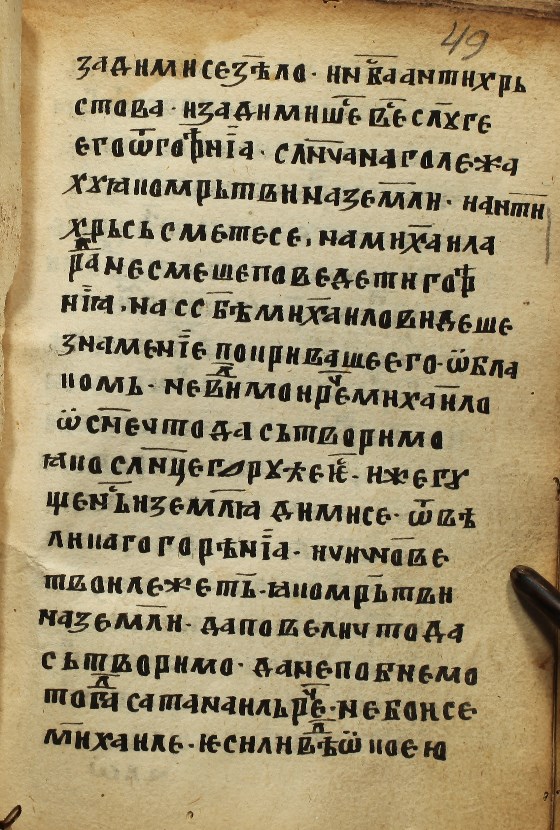 49
задимисезѣло· ичⷭ҇кваантихрь
стова· изадимишеⷭ҇ веⷭ҇ слꙋге
егоѿгорⷺ҇нїа· слнчанаголежа
хꙋꙗкомрьтвиназемли·ианти
хрьсьсметесе, намихаила
рⷣанесмешеповедетигорⷺ
нїꙗ, насс бѣмихаиловидеше
знаменїе покривашеего· ѡбла
комь· невⷣимокречⷨихаило
ѡсмечтодасьтворимо
ꙗкослнцегорꙋжеѥⷭ҇· ижегꙋ
щенⷭ҇ьиземлꙗ димисе· ѿвѣ
ликагогорѣнїа· ичиновⷭ҇е
твоилежеть· ꙗкомрьтви
наземли· даповеличтода
сьтворимо· данепокнемо
тогⷣасатанаильречⷱ· небоисе
михаиле· ѥсиливⷣѣѡкоею